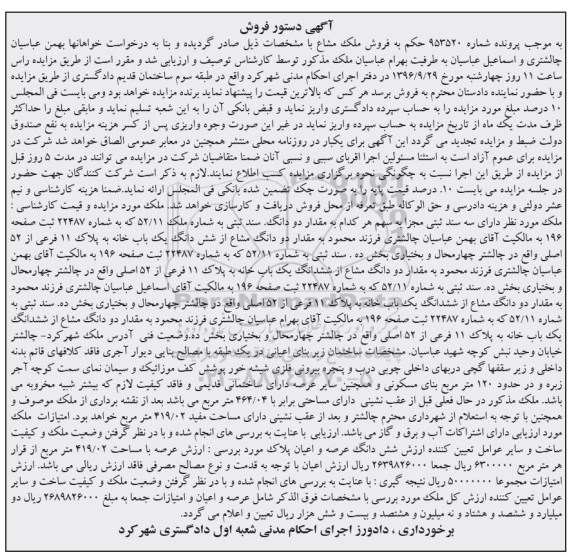 آگهی دستور فروش
به موجب پرونده شماره ۹۵۳۵۲۰ حکم به فروش ملک مشاع با مشخصات ذیل صادر گردیده و بنا به درخواست خواهانها بهمن عباسیان
چالشتری و اسماعیل عباسیان به طرفیت بهرام عباسیان ملک مذکور توسط کارشناس توصیف و ارزیابی شد و مقرر است از طریق مزایده راس
ساعت ۱۱ روز چهارشنبه مورخ ۱۳۹۶/۹/۲۹ در دفتر اجرای احکام مدنی شهرکرد واقع در طبقه سوم ساختمان قدیم دادگستری از طریق مزایده
و با حضور نماینده دادستان محترم به فروش برسد هر کس که بالاترین قیمت را پیشنهاد نماید برنده مزایده خواهد بود ومی بایست فی المجلس
۱۰ درصد مبلغ مورد مزایده را به حساب سپرده دادگستری واریز نماید و قبض بانکی آن را به این شعبه تسلیم نماید و مابقی مبلغ را حداکثر
ظرف مدت یک ماه از تاریخ مزایده به حساب سپرده واریز نماید در غیر این صورت وجوه واریزی پس از کسر هزینه مزایده به نفع صندوق
دولت ضبط و مزایده تجدید می گردد این آگهی برای یکبار در روزنامه محلی منتشر همچنین در معابر عمومی الصاق خواهد شد شرکت در
مزایده برای عموم آزاد است به استثنا مسئولین اجرا اقربای سببی و نسبی آنان ضمنا متقاضیان شرکت در مزایده می توانند در مدت ۵ روز قبل
از مزایده از طریق این اجرا نسبت به چگونگی نحوه برگزاری مزایده کسب اطلاع نمایند.لازم به ذکر است شرکت کنندگان جهت حضور
در جلسه مزایده می بایست ۱۰. درصد قیمت پایه را به صورت چک تضمین شده بانکی فی المجلس ارائه نماید.ضمنا هزینه کارشناسی و نیم
عشر دولتی و هزینه دادرسی و حق الوکاله طبق تعرفه از محل فروش دریافت و کارسازی خواهد شد. ملک مورد مزایده و قیمت کارشناسی :
ملک مورد نظر دارای سه سند ثبتی مجزا به سهم هر کدام به مقدار دو دانگ. سند ثبتی به شماره ملک ۵۲/۱۱ که به شماره ۲۲۴۸۷ ثبت صفحه
۱۹۶ به مالکیت آقای بهمن عباسیان چالشتری فرزند محمود به مقدار دو دانگ مشاع از شش دانگ یک باب خانه به پلاک ۱۱ فرعی از ۵۲
اصلی واقع در چالشتر چهارمحال و بختیاری بخش ده . سند ثبتی به شماره ۵۲/۱۱ که به شماره ۲۲۴۸۷ ثبت صفحه ۱۹۶ به مالکیت آقای بهمن
عباسیان چالشتری فرزند محمود به مقدار دو دانگ مشاع از ششدانگ یک باب خانه به پلاک ۱۱ فرعی از ۵۲ اصلی واقع در چالشتر چهارمحال
و بختیاری بخش ده. سند ثبتی به شماره ۵۲/۱۱ که به شماره ۲۲۴۸۷ ثبت صفحه ۱۹۶ به مالکیت آقای اسماعیل عباسیان چالشتری فرزند محمود
به مقدار دو دانگ مشاع از ششدانگ یک باب خانه به پلاک ۱۱ فرعی از ۵۲ اصلی واقع در چالشتر چهارمحال و بختیاری بخش ده. سند ثبتی به
شماره ۵۲/۱۱ که به شماره ۲۲۴۸۷ ثبت صفحه ۱۹۶ به مالکیت آقای بهرام عباسیان چالشتری فرزند محمود به مقدار دو دانگ مشاع از ششدانگ
یک باب خانه به پلاک ۱۱ فرعی از ۵۲ اصلی واقع در چالشتر چهارمحال و بختیاری بخش ده.وضعیت فنی آدرس ملک شهرکرد- چالشتر
خیابان وحید نبش کوچه شهید عباسیان. مشخصات ساختمان زیر بنای اعیانی در یک طبقه با مصالح بنایی دیوار آجری فاقد کلافهای قائم بدنه
داخلی و زیر سقفها گچی دربهای داخلی چوبی درب و پنجره بیرونی فلزی شیشه خور پوشش کف موزائیک و سیمان نمای سمت کوچه آجر
زبره و در حدود ۱۲۰ متر مربع بنای مسکونی و همچنین سایر عرصه دارای ساختمانی قدیمی و فاقد کیفیت لازم که بیشتر شبیه مخروبه می
باشد. ملک مذکور در حال فعلی قبل از عقب نشینی دارای مساحتی برابر با ۴۶۴/۰۴ متر مربع می باشد بعد از نقشه برداری از ملک موصوف و
همچنین با توجه به استعلام از شهرداری محترم چالشتر و بعد از عقب نشینی دارای مساحت مفید ۴۱۹/۰۲ متر مربع خواهد بود. امتیازات ملک
مورد ارزیابی دارای اشتراکات آب و برق و گاز می باشد. ارزیابی با عنایت به بررسی های انجام شده و با در نظر گرفتن وضعیت ملک و کیفیت
ساخت و سایر عوامل تعیین کننده ارزش شش دانگ عرصه و اعیان پلاک مورد بررسی : ارزش عرصه با مساحت ۴۱۹/۰۲ متر مربع از قرار
هر متر مربع ۶۳۰۰۰۰۰ ریال جمعا ۲۶۳۹۸۲۶۰۰۰ ریال ارزش اعیان با توجه به قدمت و نوع مصالح مصرفی فاقد ارزش ریالی می باشد. ارزش
امتیازات مجموعا ۵۰۰۰۰۰۰۰ ریال نتیجه گیری : با عنایت به بررسی های انجام شده و با در نظر گرفتن وضعیت ملک و کیفیت ساخت و سایر
عوامل تعیین کننده ارزش کل ملک مورد بررسی با مشخصات فوق الذکر شامل عرصه و اعیان و امتیازات جمعا به مبلغ ۲۶۸۹۸۲۶۰۰۰ ریال دو
میلیارد و ششصد و هشتاد و نه میلیون و هشتصد و بیست و شش هزار ریال تعیین و اعلام می گردد.
برخورداری ، دادورز اجرای احکام مدنی شعبه اول دادگستری شهرکرد